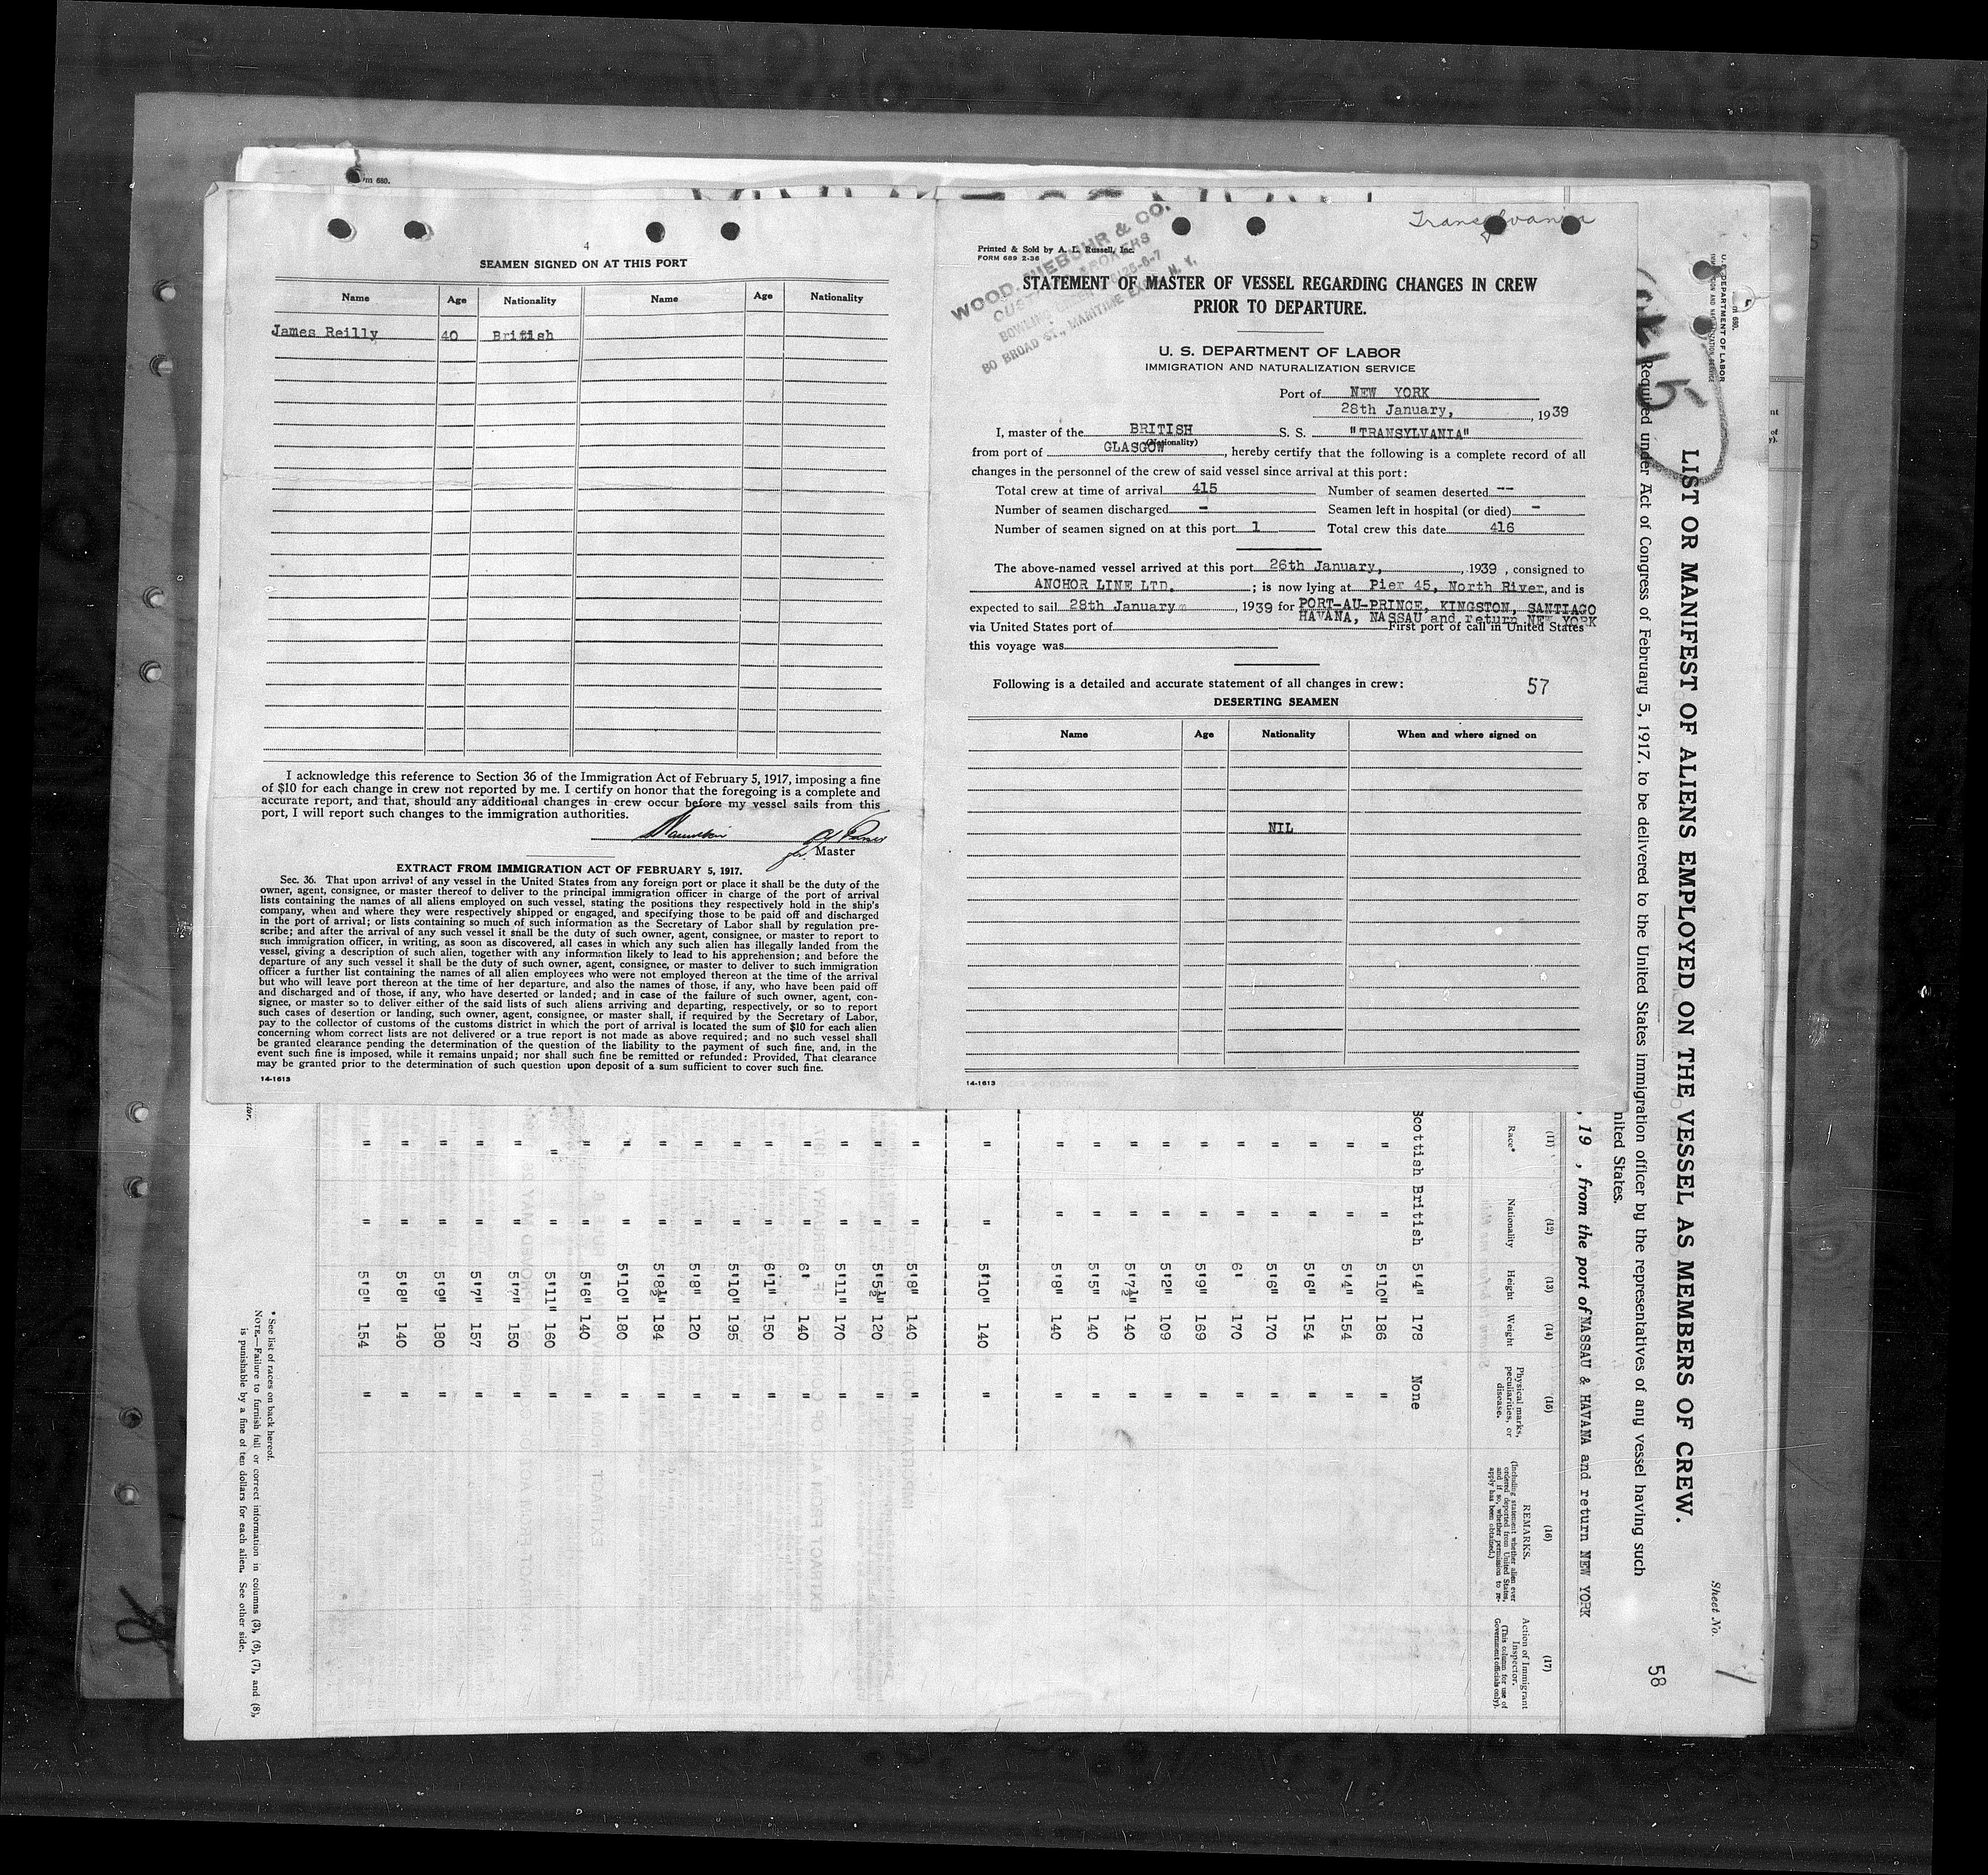 m 680.
4
SEAMEN SIGNED ON AT THIS PORT
Name Age Nationality Name Age Nationality
James Reilly 40 British
I acknowledge this reference to Section 36 of the Immigration Act of February 5, 1917, imposing a fine
of $10 for each change in crew not reported by me. I certify on honor that the foregoing is a complete and
accurate report, and that, should any additional changes in crew occur before my vessel sails from this
port, I will report such changes to the immigration authorities.
for Master
EXTRACT FROM IMMIGRATION ACT OF FEBRUARY 5, 1917.
Sec. 36. That upon arrival of any vessel in the United States from any foreign port or place it shall be the duty of the
owner, agent, consignee, or master thereof to deliver to the principal immigration officer in charge of the port of arrival
lists containing the names of all aliens employed on such vessel, stating the positions they respectively hold in the ship's
company, when and where they were respectively shipped or engaged, and specifying those to be paid off and discharged
in the port of arrival; or lists containing so much of such information as the Secretary of Labor shall by regulation pre-
scribe; and after the arrival of any such vessel it shall be the duty of such owner, agent, consignee, or master to report to
such immigration officer, in writing, as soon as discovered, all cases in which any such alien has illegally landed from the
vessel, giving a description of such alien, together with any information likely to lead to his apprehension; and before the
departure of any such vessel it shall be the duty of such owner, agent, consignee, or master to deliver to such immigration
officer a further list containing the names of all alien employees who were not employed thereon at the time of the arrival
but who will leave port thereon at the time of her departure, and also the names of those, if any, who have been paid off
and discharged and of those, if any, who have deserted or landed; and in case of the failure of such owner, agent, con-
signee, or master so to deliver either of the said lists of such aliens arriving and departing, respectively, or so to report
such cases of desertion or landing, such owner, agent, consignee, or master shall, if required by the Secretary of Labor,
pay to the collector of customs of the customs district in which the port of arrival is located the sum of $10 for each alien
concerning whom correct lists are not delivered or a true report is not made as above required; and no such vessel shall
be granted clearance pending the determination of the question of the liability to the payment of such fine, and, in the
event such fine is imposed, while it remains unpaid; nor shall such fine be remitted or refunded: Provided, That clearance
may be granted prior to the determination of such question upon deposit of a sum sufficient to cover such fine.
14-1613
Transylvania
Printed & Sold by A. L. Russell, Inc.
FORM 689 2-36
WOOD, NIEBUHR & CO.
CUSTOMS BROKERS
BOWLING GREEN 25-6-7
80 BROAD ST., MARITIME EXCH. N. Y.
STATEMENT OF MASTER OF VESSEL REGARDING CHANGES IN CREW
PRIOR TO DEPARTURE.
U. S. DEPARTMENT OF LABOR
IMMIGRATION AND NATURALIZATION SERVICE
Port of NEW YORK
28th January, , 1939
I, master of the BRITISH S. S. "TRANSYLVANIA"
(Nationality)
from port of GLASGOW, hereby certify that the following is a complete record of all
changes in the personnel of the crew of said vessel since arrival at this port:
Total crew at time of arrival 415 Number of seamen deserted --
Number of seamen discharged - Seamen left in hospital (or died) -
Number of seamen signed on at this port 1 Total crew this date 416
The above-named vessel arrived at this port 26th January, , 1939 , consigned to
ANCHOR LINE LTD. ; is now lying at Pier 45, North River, and is
expected to sail 28th January , 1939 for PORT-AU-PRINCE, KINGSTON, SANTIAGO
HAVANA, NASSAU and return NEW YORK
via United States port of First port of call in United States
this voyage was
Following is a detailed and accurate statement of all changes in crew: 57
DESERTING SEAMEN
Name Age Nationality When and where signed on
NIL
14-1613
Sheet No. 1
m 680.
U. S. DEPARTMENT OF LABOR
LIST OR MANIFEST OF ALIENS EMPLOYED ON THE VESSEL AS MEMBERS OF CREW.
Required under Act of Congress of February 5, 1917, to be delivered to the United States immigration officer by the representatives of any vessel having such
nited States.
58
, 19 , from the port of NASSAU & HAVANA and return NEW YORK
(11) (12) (13) (14) (15) (16) (17)
Race* Nationality Height Weight Physical marks, peculiarities, or disease. REMARKS. (Including statement whether alien ever ordered deported from United States, and if so, whether permission to reapply has been obtained.) Action of Immigrant Inspector. (This column for use of Government officials only).
Scottish British 5'4" 178 None
" " 5'10" 186 "
" " 5'4" 154 "
" " 5'6" 154 "
" " 5'6" 170 "
" " 6' 170 "
" " 5'9" 169 "
" " 5'2" 109 "
" " 5'7½" 140 "
" " 5'5" 140 "
" " 5'8" 140 "
" " 5'10" 140 "
" " 5'8" 140 "
" " 5'5½" 120 "
" " 5'11" 170 "
" " 6' 140 "
" " 6'1" 150 "
" " 5'10" 195 "
" " 5'8" 120 "
" " 5'8½" 184 "
" " 5'10" 180 "
" " 5'6" 140 "
" " 5'11" 160 "
" " 5'7" 150 "
" " 5'7" 157 "
" " 5'9" 180 "
" " 5'8" 140 "
" " 5'8" 154 "
* See list of races on back hereof.
NOTE.—Failure to furnish full or correct information in columns (3), (6), (7), and (8),
is punishable by a fine of ten dollars for each alien. See other side.